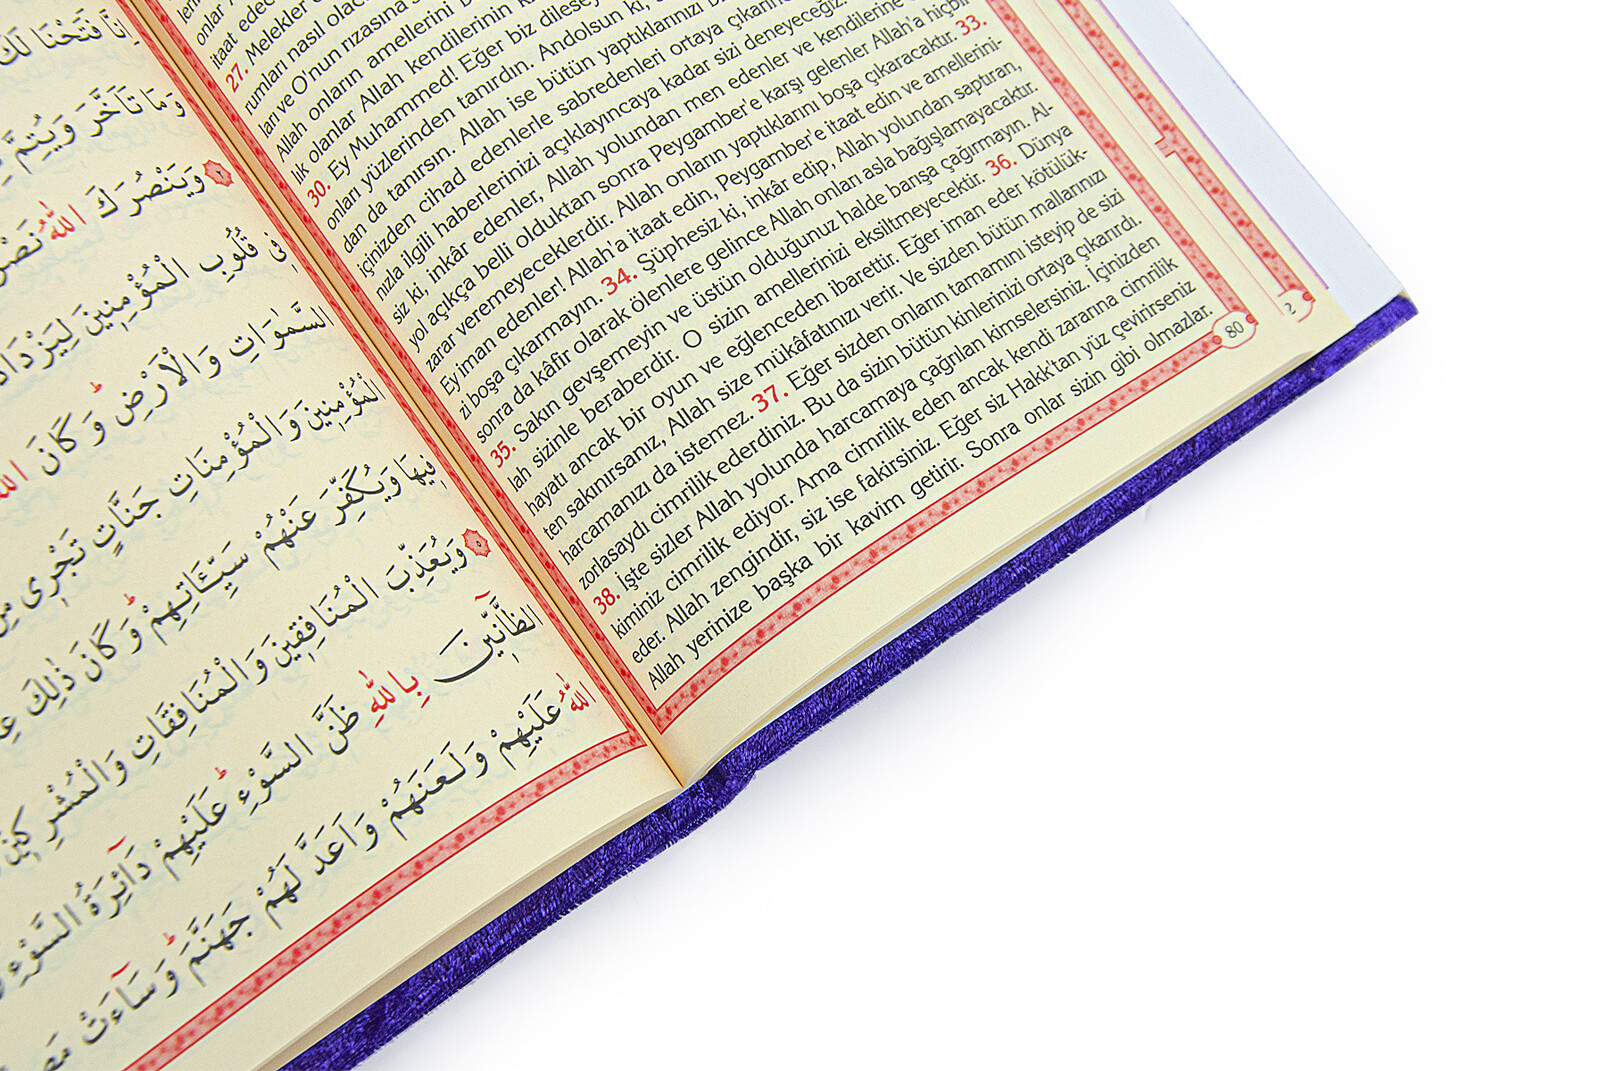 اِنَّا فَتَحْنَا لَكَ
وَمَا تَاَخَّرَ وَيُتِمَّ
٢ وَيَنْصُرَكَ اللّٰهُ نَصْرًا
فِى قُلُوبِ الْمُؤْمِنِينَ لِيَزْدَادُوا
السَّمٰوَاتِ وَالْاَرْضِ وَكَانَ اللّٰهُ
الْمُؤْمِنِينَ وَالْمُؤْمِنَاتِ جَنَّاتٍ تَجْرِى مِنْ
فِيهَا وَيُكَفِّرَ عَنْهُمْ سَيِّـَٔاتِهِمْ وَكَانَ ذٰلِكَ
٥ وَيُعَذِّبَ الْمُنَافِقِينَ وَالْمُنَافِقَاتِ وَالْمُشْرِكِينَ
الظَّٓانِّينَ بِاللّٰهِ ظَنَّ السَّوْءِ عَلَيْهِمْ دَٓائِرَةُ السَّوْءِ
اللّٰهُ عَلَيْهِمْ وَلَعَنَهُمْ وَاَعَدَّ لَهُمْ جَهَنَّمَ وَسَٓاءَتْ
onlar
itaat
27. Melekler
rumları nasıl
ları ve O'nun rızasına
Allah onların amellerini
lik olanlar Allah kendilerinin
30. Ey Muhammed! Eğer biz dileseydik
onları yüzlerinden tanırdın. Andolsun ki,
dan da tanırsın. Allah ise bütün yaptıklarınızı
içinizden cihad edenlerle sabredenleri ortaya
nızla ilgili haberlerinizi açıklayıncaya kadar sizi deneyeceğiz.
siz ki, inkâr edenler, Allah yolundan men edenler ve kendilerine
yol açıkça belli olduktan sonra Peygamber'e karşı gelenler Allah'a hiçbir
zarar veremeyeceklerdir. Allah onların yaptıklarını boşa çıkaracaktır. 33.
Ey iman edenler! Allah'a itaat edin, Peygamber'e itaat edin ve amellerini-
zi boşa çıkarmayın. 34. Şüphesiz ki, inkâr edip, Allah yolundan saptıran,
sonra da kâfir olarak ölenlere gelince Allah onları asla bağışlamayacaktır.
35. Sakın gevşemeyin ve üstün olduğunuz halde barışa çağırmayın. Al-
lah sizinle beraberdir. O sizin amellerinizi eksiltmeyecektir. 36. Dünya
hayatı ancak bir oyun ve eğlenceden ibarettir. Eğer iman eder kötülük-
ten sakınırsanız, Allah size mükâfatınızı verir. Ve sizden bütün mallarınızı
harcamanızı da istemez. 37. Eğer sizden onların tamamını isteyip de sizi
zorlasaydı cimrilik ederdiniz. Bu da sizin bütün kinlerinizi ortaya çıkarırdı.
38. İşte sizler Allah yolunda harcamaya çağrılan kimselersiniz. İçinizden
kiminiz cimrilik ediyor. Ama cimrilik eden ancak kendi zararına cimrilik
eder. Allah zengindir, siz ise fakirsiniz. Eğer siz Hakk'tan yüz çevirirseniz
Allah yerinize başka bir kavim getirir. Sonra onlar sizin gibi olmazlar.
80
2